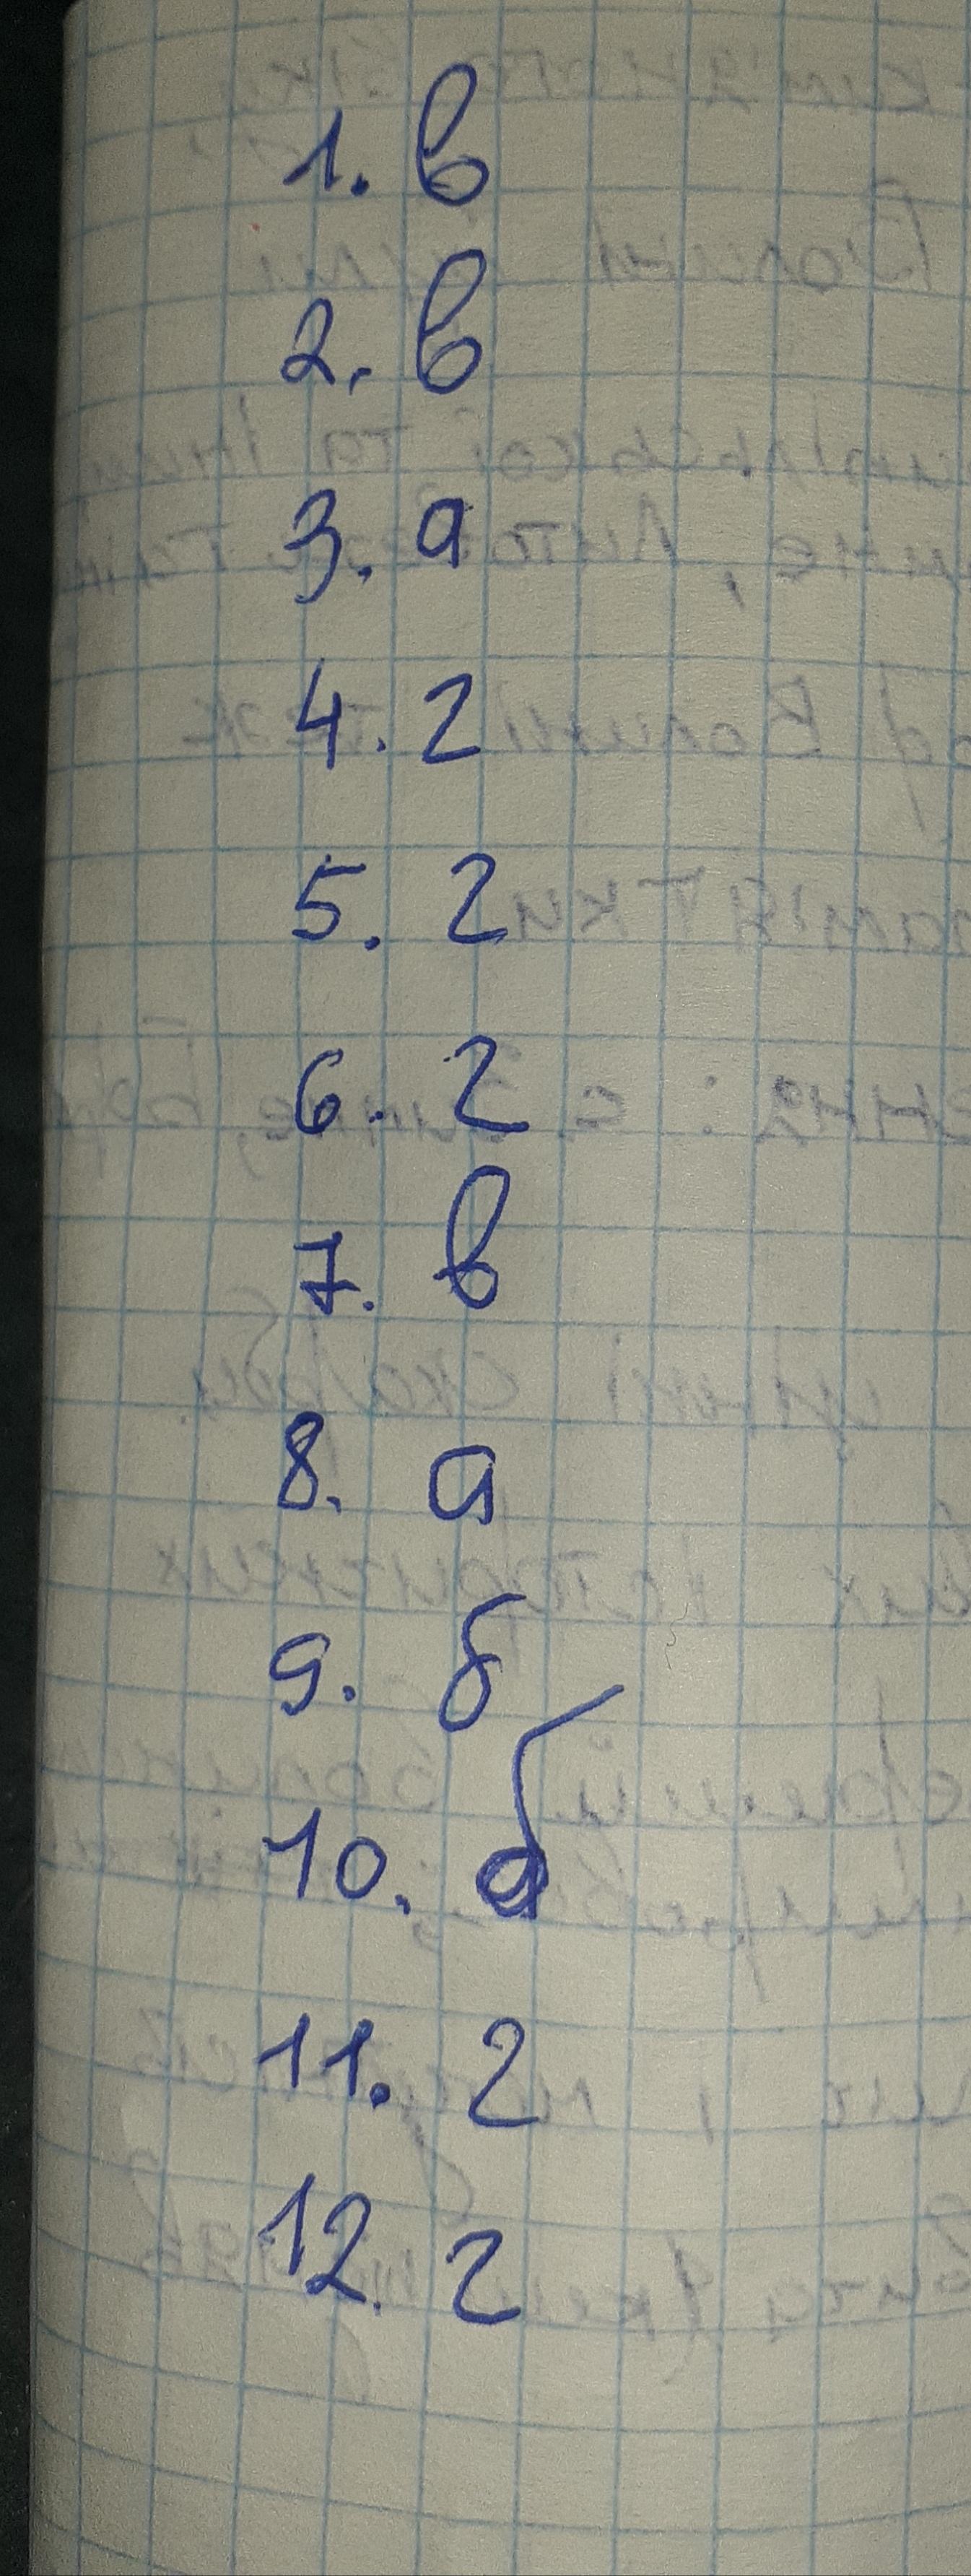 1. в
2. в
3. а
4. г
5. г
6. г
7. в
8. а
9. б
10. б
11. г
12. г